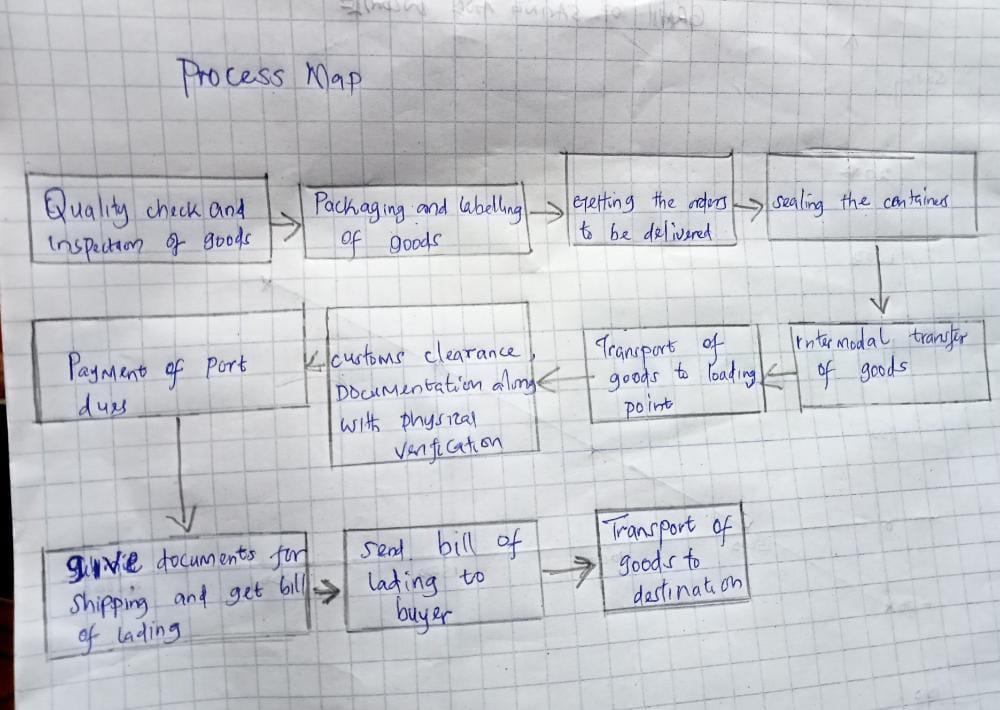 Process Map
Quality check and
inspection of goods
Packaging and labelling
of goods
the orders
to be delivered
sealing the containers
Intermodal transfer
of goods
Transport of
goods to loading
point
customs clearance,
Documentation along
with physical
verification
Payment of Port
dues
give documents for
shipping and get bill
of lading
send bill of
lading to
buyer
Transport of
goods to
destination